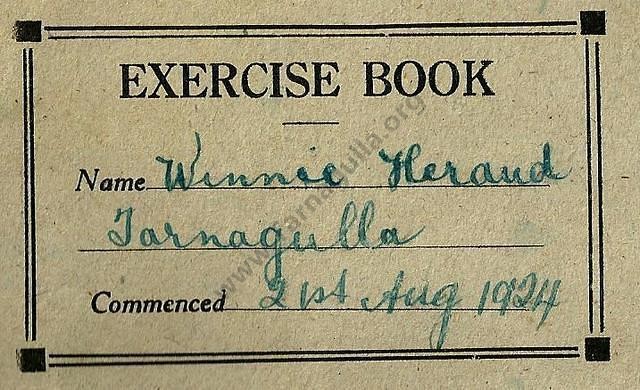 EXERCISE BOOK
Name Winnie Heraud
Tarnagulla
Commenced 21st Aug 1924
www.tarnagulla.org